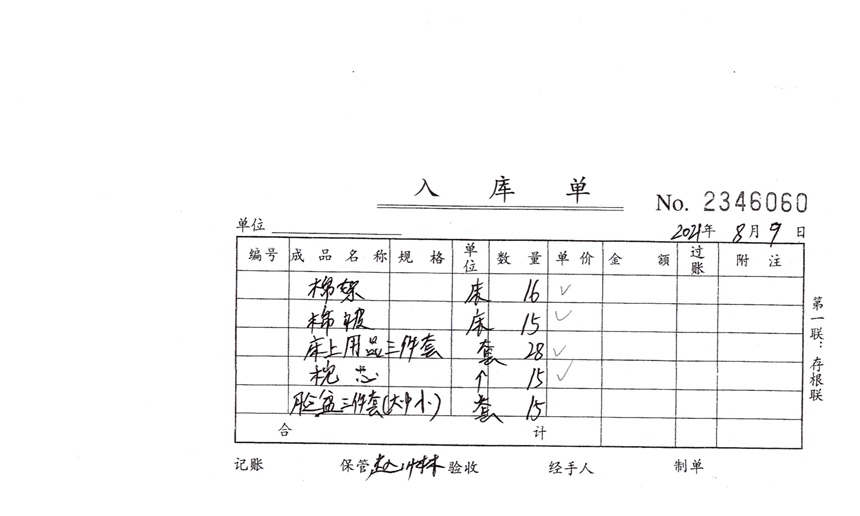 入 库 单
No. 2346060
单位
2021年 8月 9日
编号 成品名称 规格 单位 数量 单价 金额 过账 附注
棉絮 床 16 ✓
棉被 床 15 ✓
床上用品三件套 套 28 ✓
枕芯 个 15 ✓
脸盆三件套(大中小) 套 15
合 计
第一联：存根联
记账 保管 验收 经手人 制单